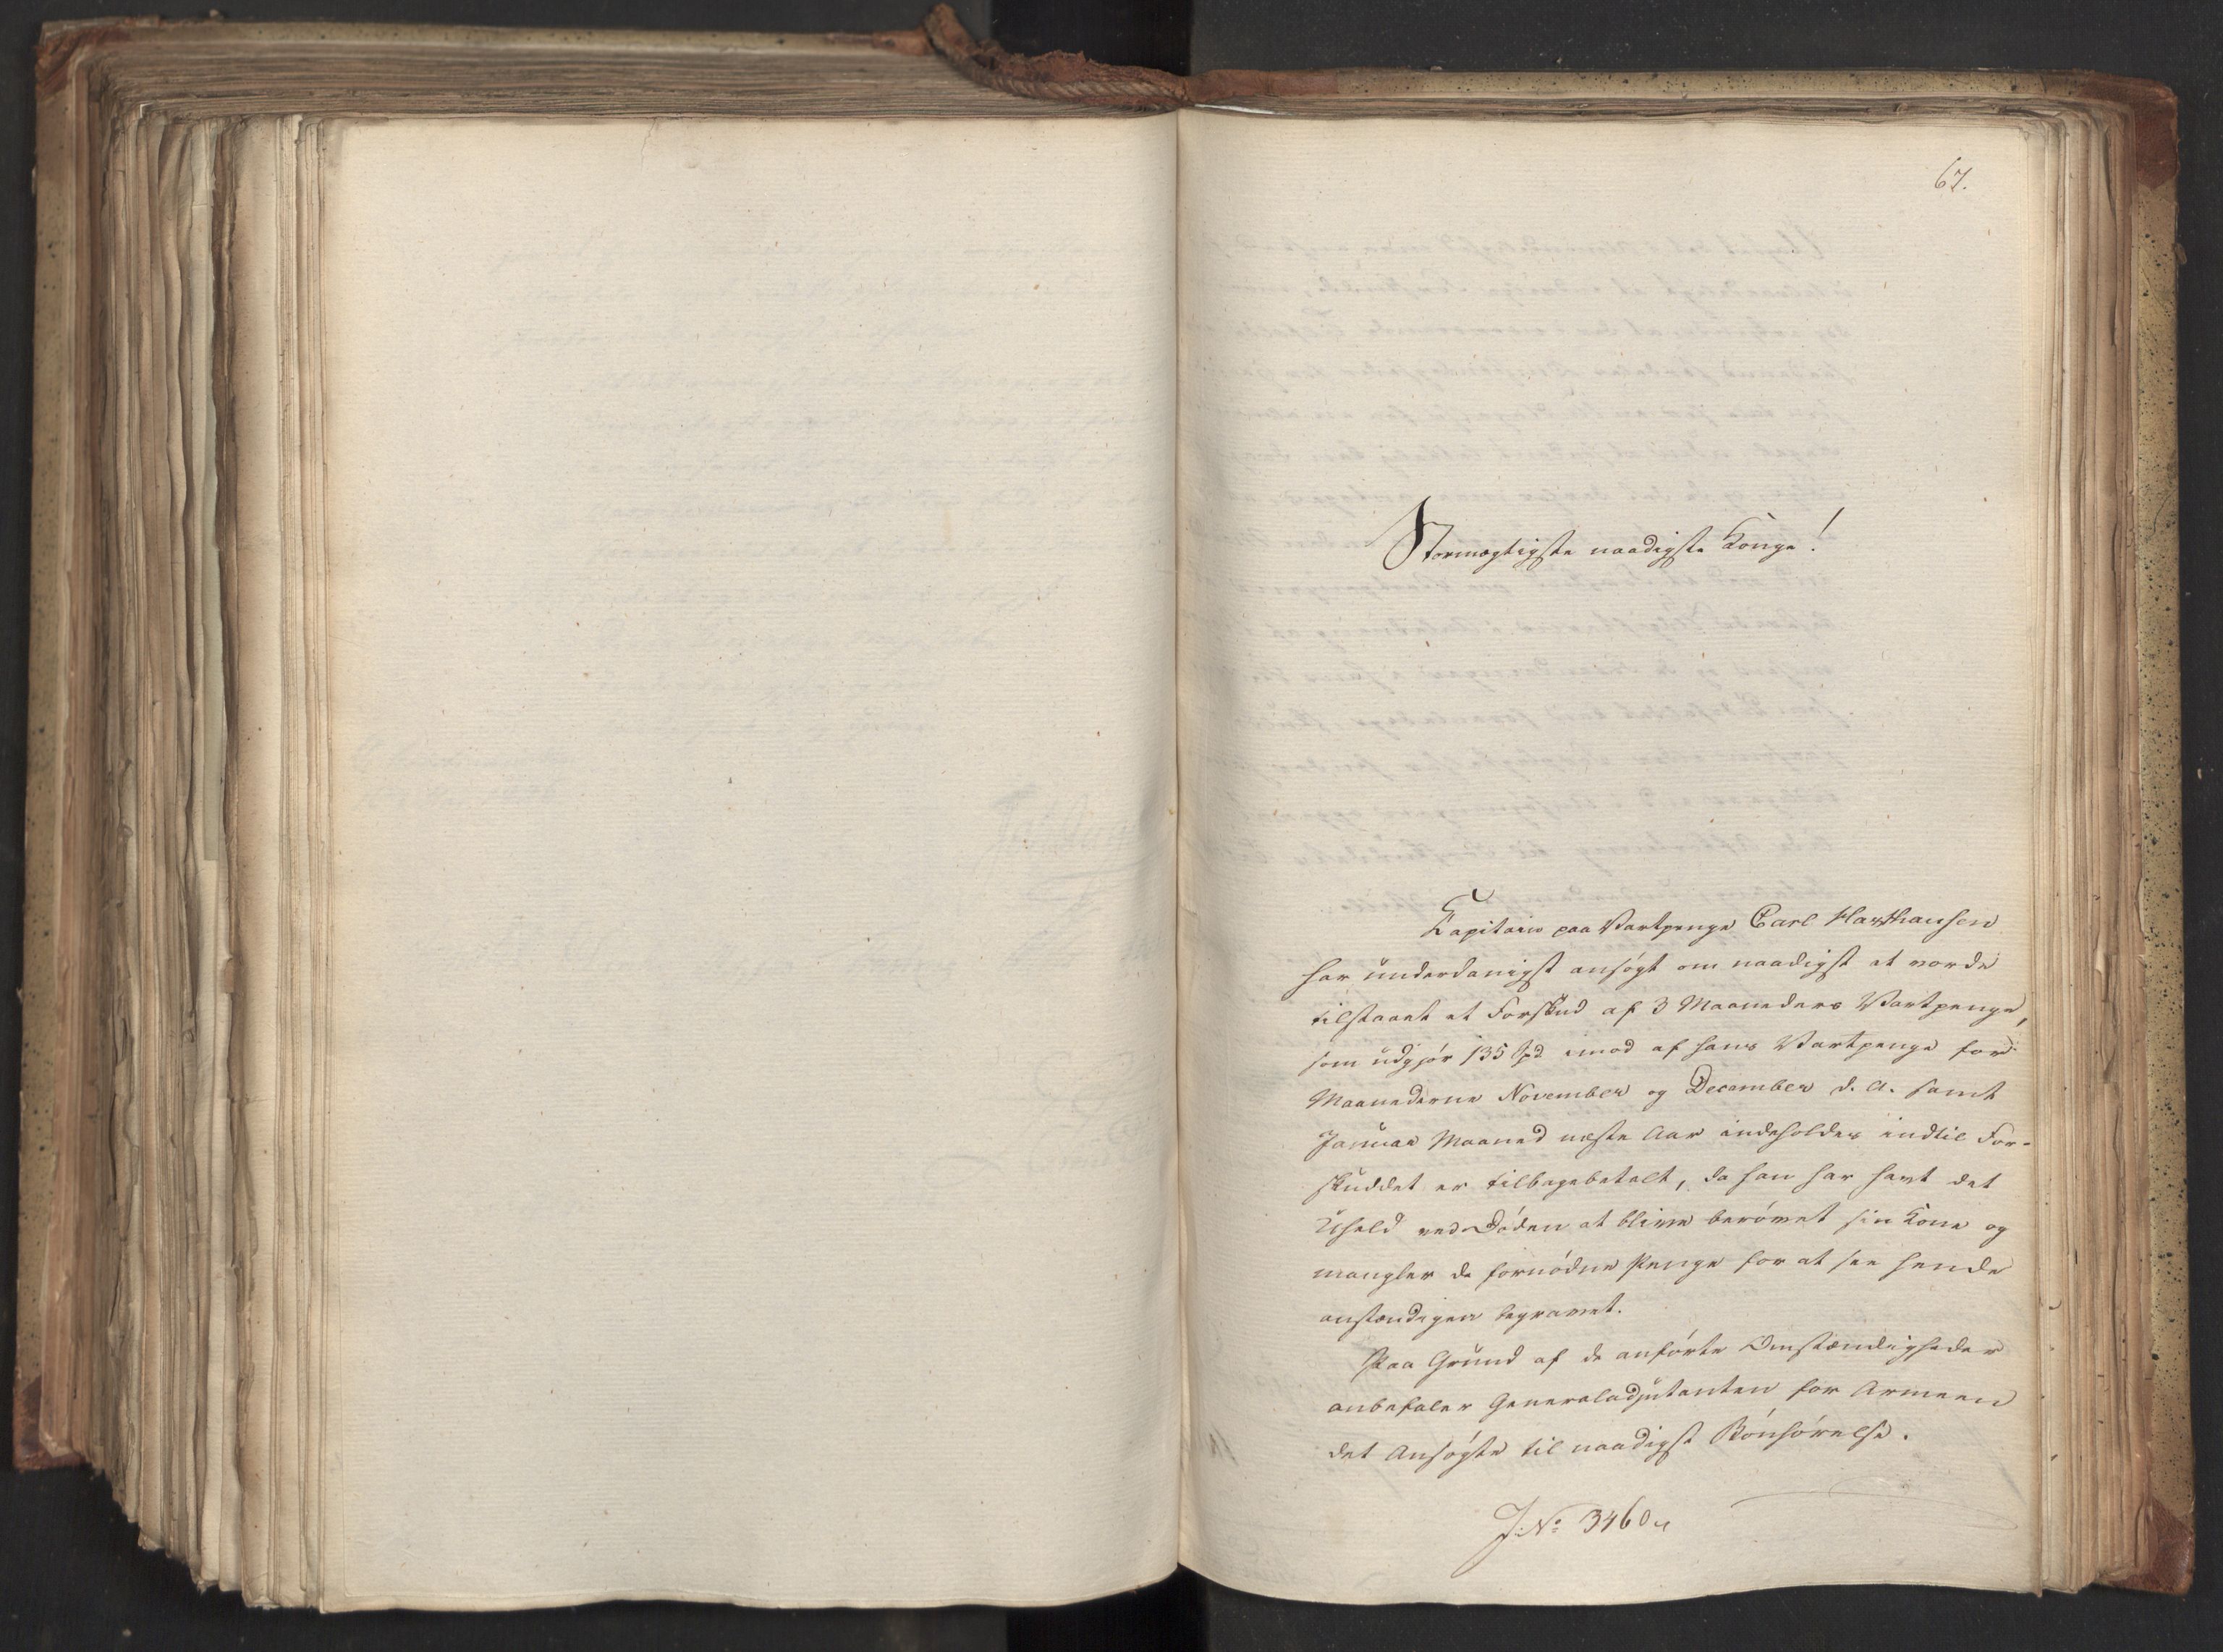 67.
Stormægtigste naadigste Konge!
Kapitain paa Vartpenge Carl Haxthausen
har underdanigst ansøgt om naadigst at vorde
tilstaaet et Forskud af 3 Maaneders Vartpenge,
som udgjør 135 Spd imod af hans Vartpenge for
Maanederne November og December d. A. samt
Januar Maaned næste Aar indeholdes indtil For-
skuddet er tilbagebetalt, da han har havt det
Uheld ved Døden at blive berøvet sin Kone og
mangler de fornødne Penge for at see hende
anstændigen begravet.
Paa Grund af de anførte Omstændigheder
anbefaler Generaladjutanten for Armeen
det Ansøgte til naadigst Bønhørelse.
J. No 3460